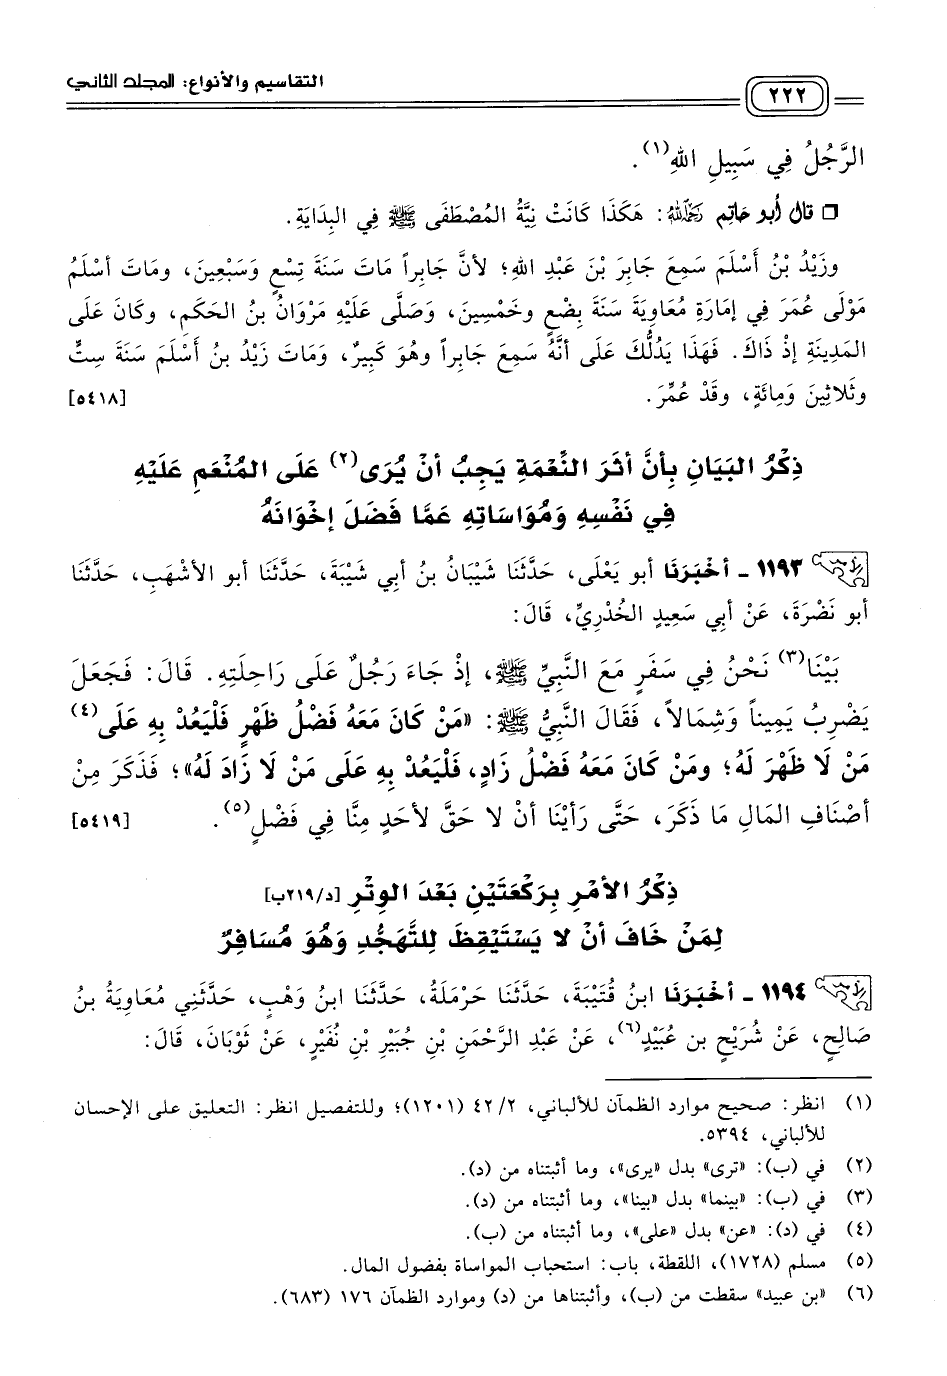 ٢٢٢
التقاسيم والأنواع: المجلد الثاني
الرَّجُلُ فِي سَبِيلِ اللهِ(١).
❑ قال أبو حاتِم رَحِمَهُ اللهُ: هَكَذَا كَانَتْ نِيَّةُ المُصْطَفَى ﷺ فِي البِدَايَةِ.
وزَيْدُ بْنُ أَسْلَمَ سَمِعَ جَابِرَ بْنَ عَبْدِ اللهِ؛ لأنَّ جَابِراً مَاتَ سَنَةَ تِسْعٍ وَسَبْعِينَ، ومَاتَ أسْلَمُ
مَوْلَى عُمَرَ فِي إمَارَةِ مُعَاوِيَةَ سَنَةَ بِضْعٍ وخَمْسِينَ، وَصَلَّى عَلَيْهِ مَرْوَانُ بنُ الحَكَمِ، وكَانَ عَلَى
المَدِينَةِ إذْ ذَاكَ. فَهَذَا يَدُلُّكَ عَلَى أنَّهُ سَمِعَ جَابِراً وهُوَ كَبِيرٌ، وَمَاتَ زَيْدُ بنُ أَسْلَمَ سَنَةَ سِتٍّ
وثَلاثِينَ وَمِائَةٍ، وقَدْ عُمِّرَ. [٥٤١٨]
ذِكْرُ البَيَانِ بِأنَّ أثَرَ النِّعْمَةِ يَجِبُ أنْ يُرَى(٢) عَلَى المُنْعَمِ عَلَيْهِ
فِي نَفْسِهِ وَمُوَاسَاتِهِ عَمَّا فَضَلَ إخْوَانَهُ
١١٩٣ - أخْبَرَنَا أبو يَعْلَى، حَدَّثَنَا شَيْبَانُ بنُ أبي شَيْبَةَ، حَدَّثَنَا أبو الأشْهَبِ، حَدَّثَنَا
أبو نَضْرَةَ، عَنْ أبي سَعِيدٍ الخُدْرِيِّ، قَالَ:
بَيْنَا(٣) نَحْنُ فِي سَفَرٍ مَعَ النَّبِيِّ ﷺ، إذْ جَاءَ رَجُلٌ عَلَى رَاحِلَتِهِ. قَالَ: فَجَعَلَ
يَضْرِبُ يَمِيناً وَشِمَالاً، فَقَالَ النَّبِيُّ ﷺ: «مَنْ كَانَ مَعَهُ فَضْلُ ظَهْرٍ فَلْيَعُدْ بِهِ عَلَى(٤)
مَنْ لَا ظَهْرَ لَهُ؛ ومَنْ كَانَ مَعَهُ فَضْلُ زَادٍ، فَلْيَعُدْ بِهِ عَلَى مَنْ لَا زَادَ لَهُ»؛ فَذَكَرَ مِنْ
أصْنَافِ المَالِ مَا ذَكَرَ، حَتَّى رَأيْنَا أنْ لا حَقَّ لأحَدٍ مِنَّا فِي فَضْلٍ(٥). [٥٤١٩]
ذِكْرُ الأمْرِ بِرَكْعَتَيْنِ بَعْدَ الوِتْرِ [د/٢١٩ب]
لِمَنْ خَافَ أنْ لا يَسْتَيْقِظَ لِلتَّهَجُّدِ وَهُوَ مُسَافِرٌ
١١٩٤ - أخْبَرَنَا ابنُ قُتَيْبَةَ، حَدَّثَنَا حَرْمَلَةُ، حَدَّثَنَا ابنُ وَهْبٍ، حَدَّثَنِي مُعَاوِيَةُ بنُ
صَالِحٍ، عَنْ شُرَيْحِ بنِ عُبَيْدٍ(٦)، عَنْ عَبْدِ الرَّحْمَنِ بْنِ جُبَيْرِ بْنِ نُفَيْرٍ، عَنْ ثَوْبَانَ، قَالَ:
(١) انظر: صحيح موارد الظمآن للألباني، ٤٢/٢ (١٢٠١)؛ وللتفصيل انظر: التعليق على الإحسان
للألباني، ٥٣٩٤.
(٢) في (ب): «ترى» بدل «يرى»، وما أثبتناه من (د).
(٣) في (ب): «بينما» بدل «بينا»، وما أثبتناه من (د).
(٤) في (د): «عن» بدل «على»، وما أثبتناه من (ب).
(٥) مسلم (١٧٢٨)، اللقطة، باب: استحباب المواساة بفضول المال.
(٦) «بن عبيد» سقطت من (ب)، وأثبتناها من (د) وموارد الظمآن ١٧٦ (٦٨٣).